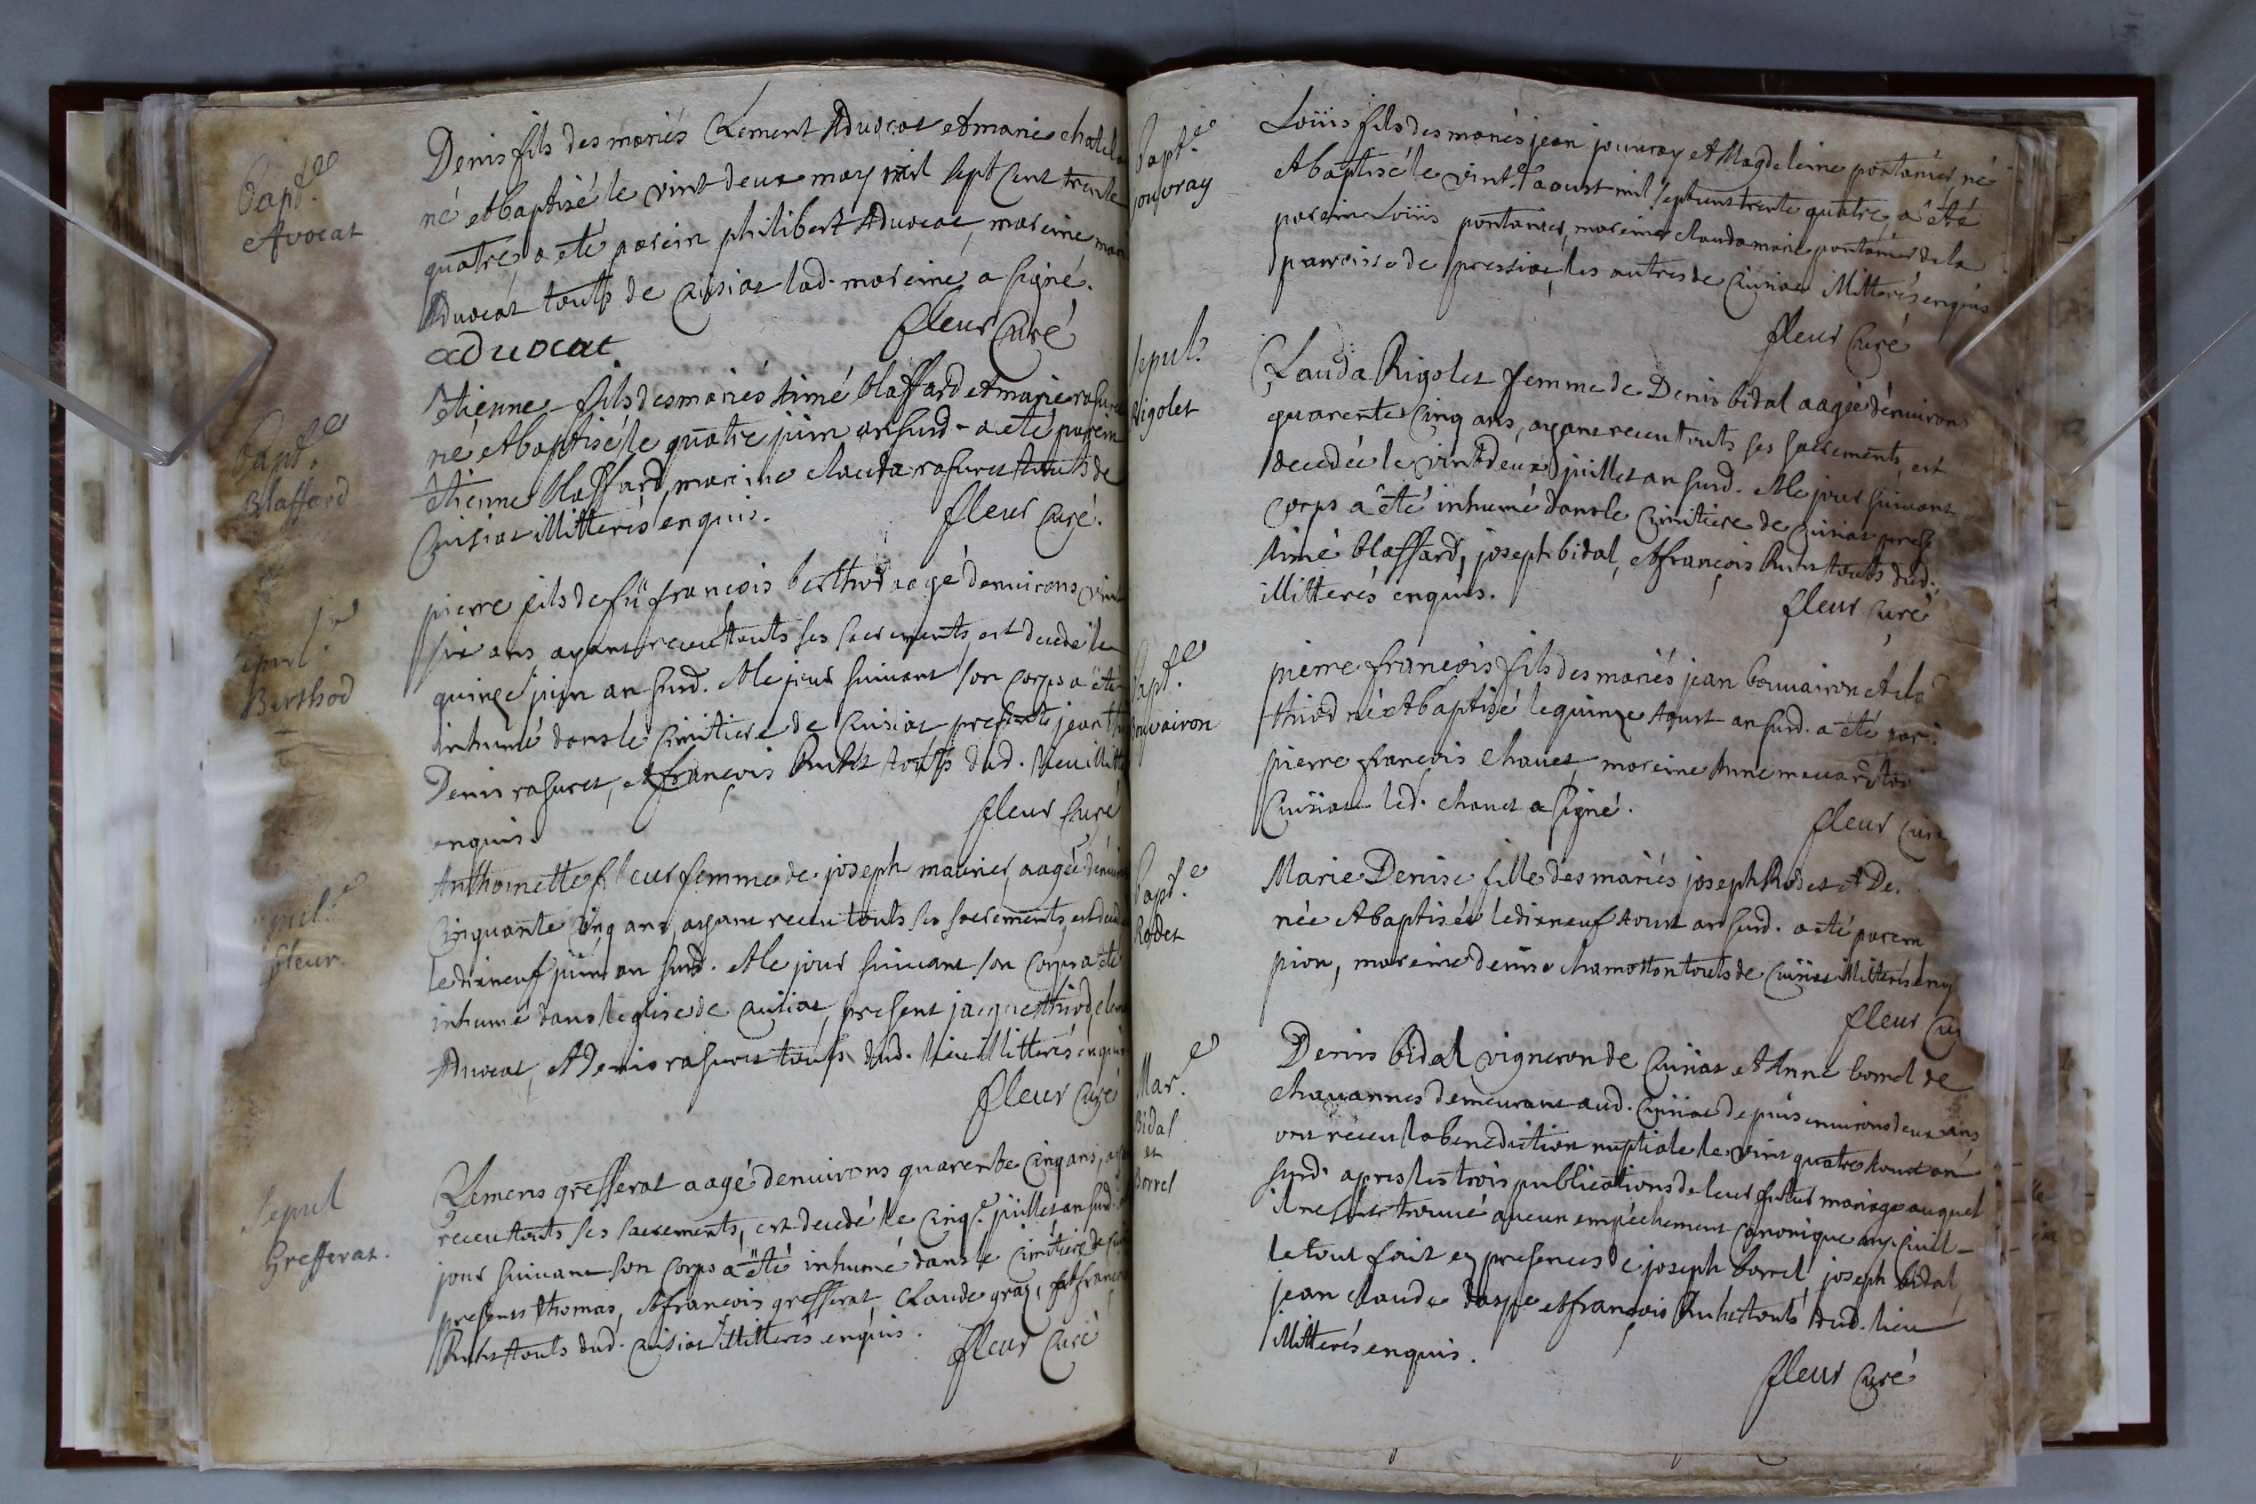 Bapt.e
Avocat
Denis fils des mariés Clement Aduocat et marie chatel
né et baptisé le vint deux may mil sept cent trente
quatre a eté parein philibert Aduocat, mareine
Aduocat touts de Cuisiat lad. mareine a signé.
aduocat fleur Curé
Bapt.e
Blaffard
etienne fils des mariés Aimé blaffard et marie rasuret
né et baptisé le quatre juin an susd. a eté parein
etienne blaffard, mareine clauda rasuret touts de
Cuisiat illitterés enquis. fleur Curé.
Berthod
pierre fils de fü françois berthod aagé denuirons vint
six ans, ayant receu touts ses sacrements, est decedé le
quinze juin an susd. et le jour suiuant son corps a eté
inhumé dans le cimitiere de Cuisiat presents jean
Denis rasuret, et françois touts dud. lieu
enquis. fleur Curé
fleur.
Anthoinette fleur femme de joseph maurier, aagée
Cinquante cinq ans, ayant receu touts ses sacrements, est
le dixneuf juin an susd. et le jour suiuant son corps a eté
inhumé dans l'eglise de Cuisiat, present jacque thiod,
Aduocat, et Denis rasuret touts dud. lieu illitterés enquis
fleur Curé
Sepul
Grefferat.
Clemens grefferat aagé denuirons quarente cinq ans,
receu touts ses sacrements, est decedé le cinq.e juillet an susd.
jour suiuant son corps a eté inhumé dans le cimitiere de
presents thomas, et françois grefferat, Claude gray, et
touts dud. Cuisiat illitterés enquis. fleur Curé
Bapt.e
jouvray
Loüis fils des mariés jean jouuray et Magdeleine pontanier, né
et baptisé le vint aoust mil sept cent trente quatre, a eté
parein Loüis pontanier, mareine clauda marie pontanier de la
parroisse de pressiat, les autres de Cuisiat illitterés enquis
fleur Curé
sepul.
Rigolet
Clauda Rigolet femme de Denis bidal aagée denuiron
quarente cinq ans, ayant receu touts ses sacrements, est
decedée le vint deux juillet an susd. et le jour suiuant
corps a eté inhumé dans le cimitiere de Cuisiat
Aimé blaffard, joseph bidal, et françois touts dud.
illitterés enquis. fleur Curé
Bapt.e
Bouvairon
pierre françois fils des mariés jean bouuairon et
thiod né et baptisé le quinze Aoust an susd. a eté
pierre françois chanet, mareine Anne
Cuisiat led. chanet a signé.
fleur
Bapt.e
Rodet
Marie Denise fille des mariés joseph Rodet et De
née et baptisée le dixneuf Aoust an susd. a eté parein
pion, mareine denise chamotton touts de Cuisiat illitterés
fleur
Mar.e
Bidal
et
Borrel
Denis bidal vigneron de Cuisiat et Anne borrel de
chauannes demeurant aud. Cuisiat depuis enuirons deux ans
ont receu la benediction nuptiale le vint quatre Aoust an
susd. apres les trois publications de leur futur mariage auquel
il ne s'est trouué aucun empêchement canonique ny ciuil
le tout fait en presences de joseph borrel, joseph bidal,
jean claude et françois touts dud. lieu
illitterés enquis.
fleur Curé